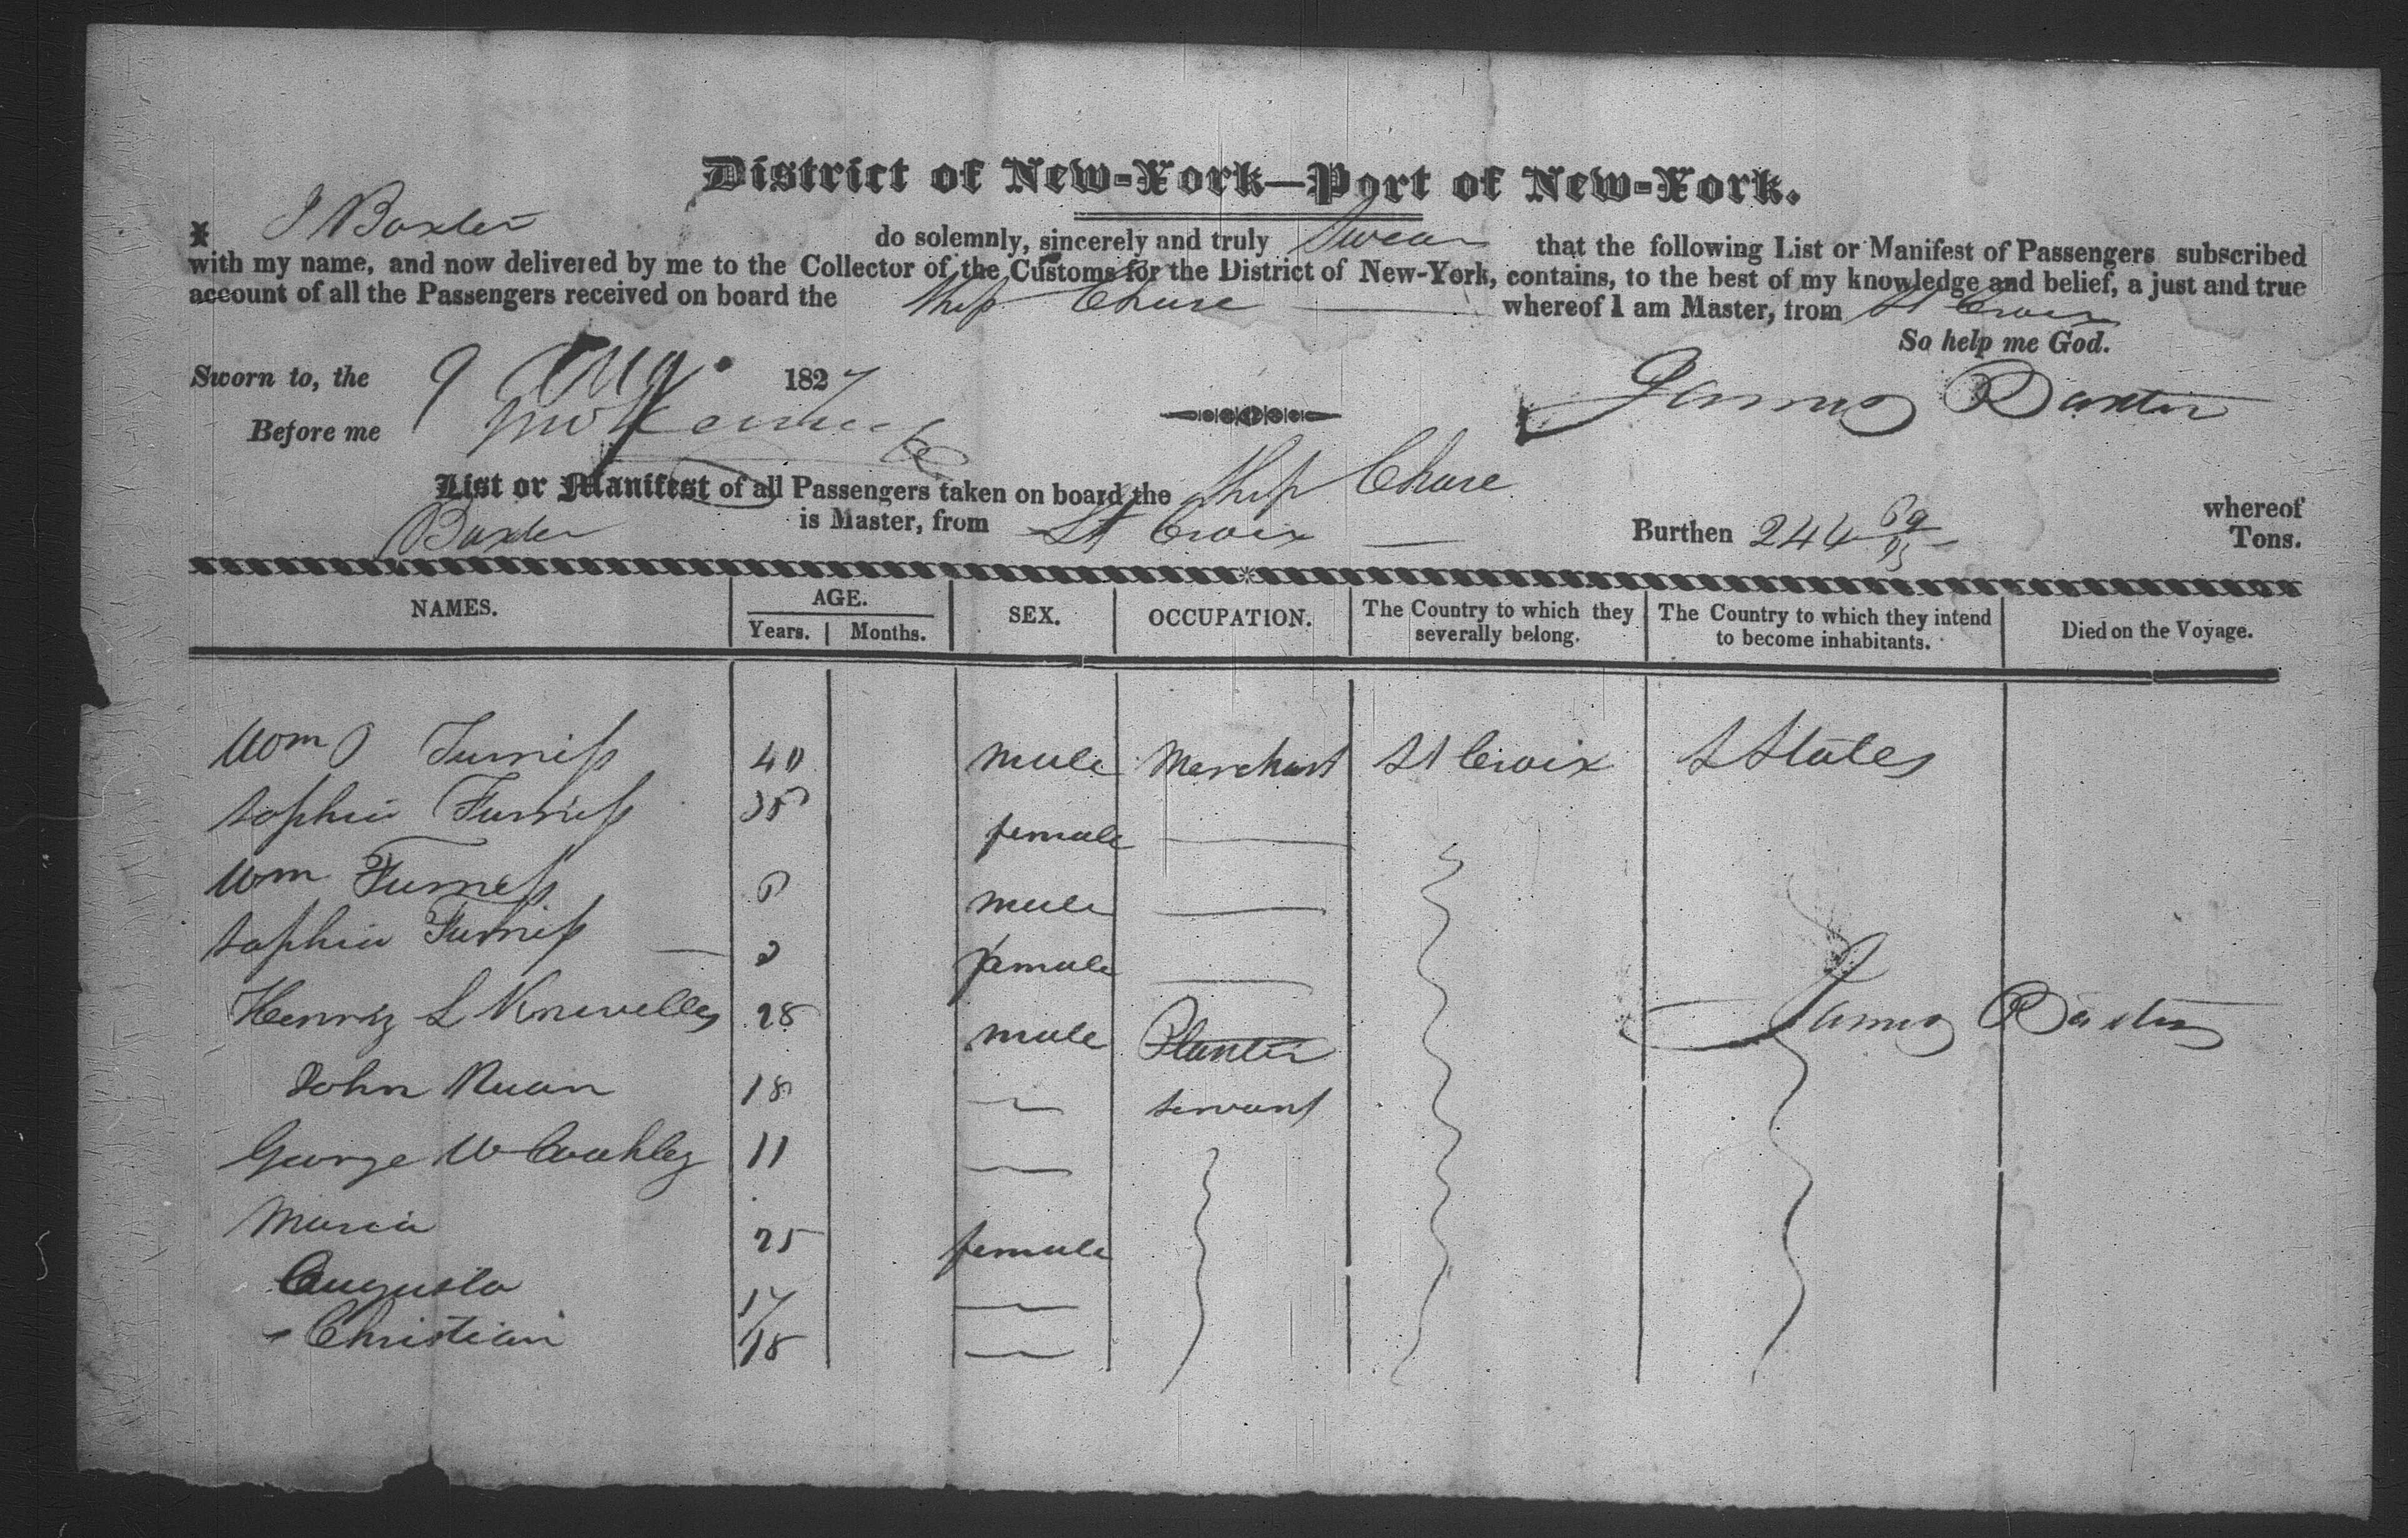 District of New-York—Port of New-York.
I J Baxter do solemnly, sincerely and truly Swear that the following List or Manifest of Passengers subscribed
with my name, and now delivered by me to the Collector of the Customs for the District of New-York, contains, to the best of my knowledge and belief, a just and true
account of all the Passengers received on board the Ship Chase whereof I am Master, from St Croix
So help me God.
Sworn to, the 9 Aug. 1827 James Baxter
Before me
List or Manifest of all Passengers taken on board the Ship Chase whereof
Baxter is Master, from St Croix — Burthen 244 69/95 Tons.
NAMES. AGE. Years. Months. SEX. OCCUPATION. The Country to which they severally belong. The Country to which they intend to become inhabitants. Died on the Voyage.
Wm Furniss 40 male Merchant St Croix States
Sophia Furniss 38 female —
Wm Furniss male —
Sophia Furniss — female —
Henry L Knevells 28 male Planter James Baxter
John Ruan 18 — servant
George W 11 —
Maria 25 female
Augusta 17 —
Christian 18 —